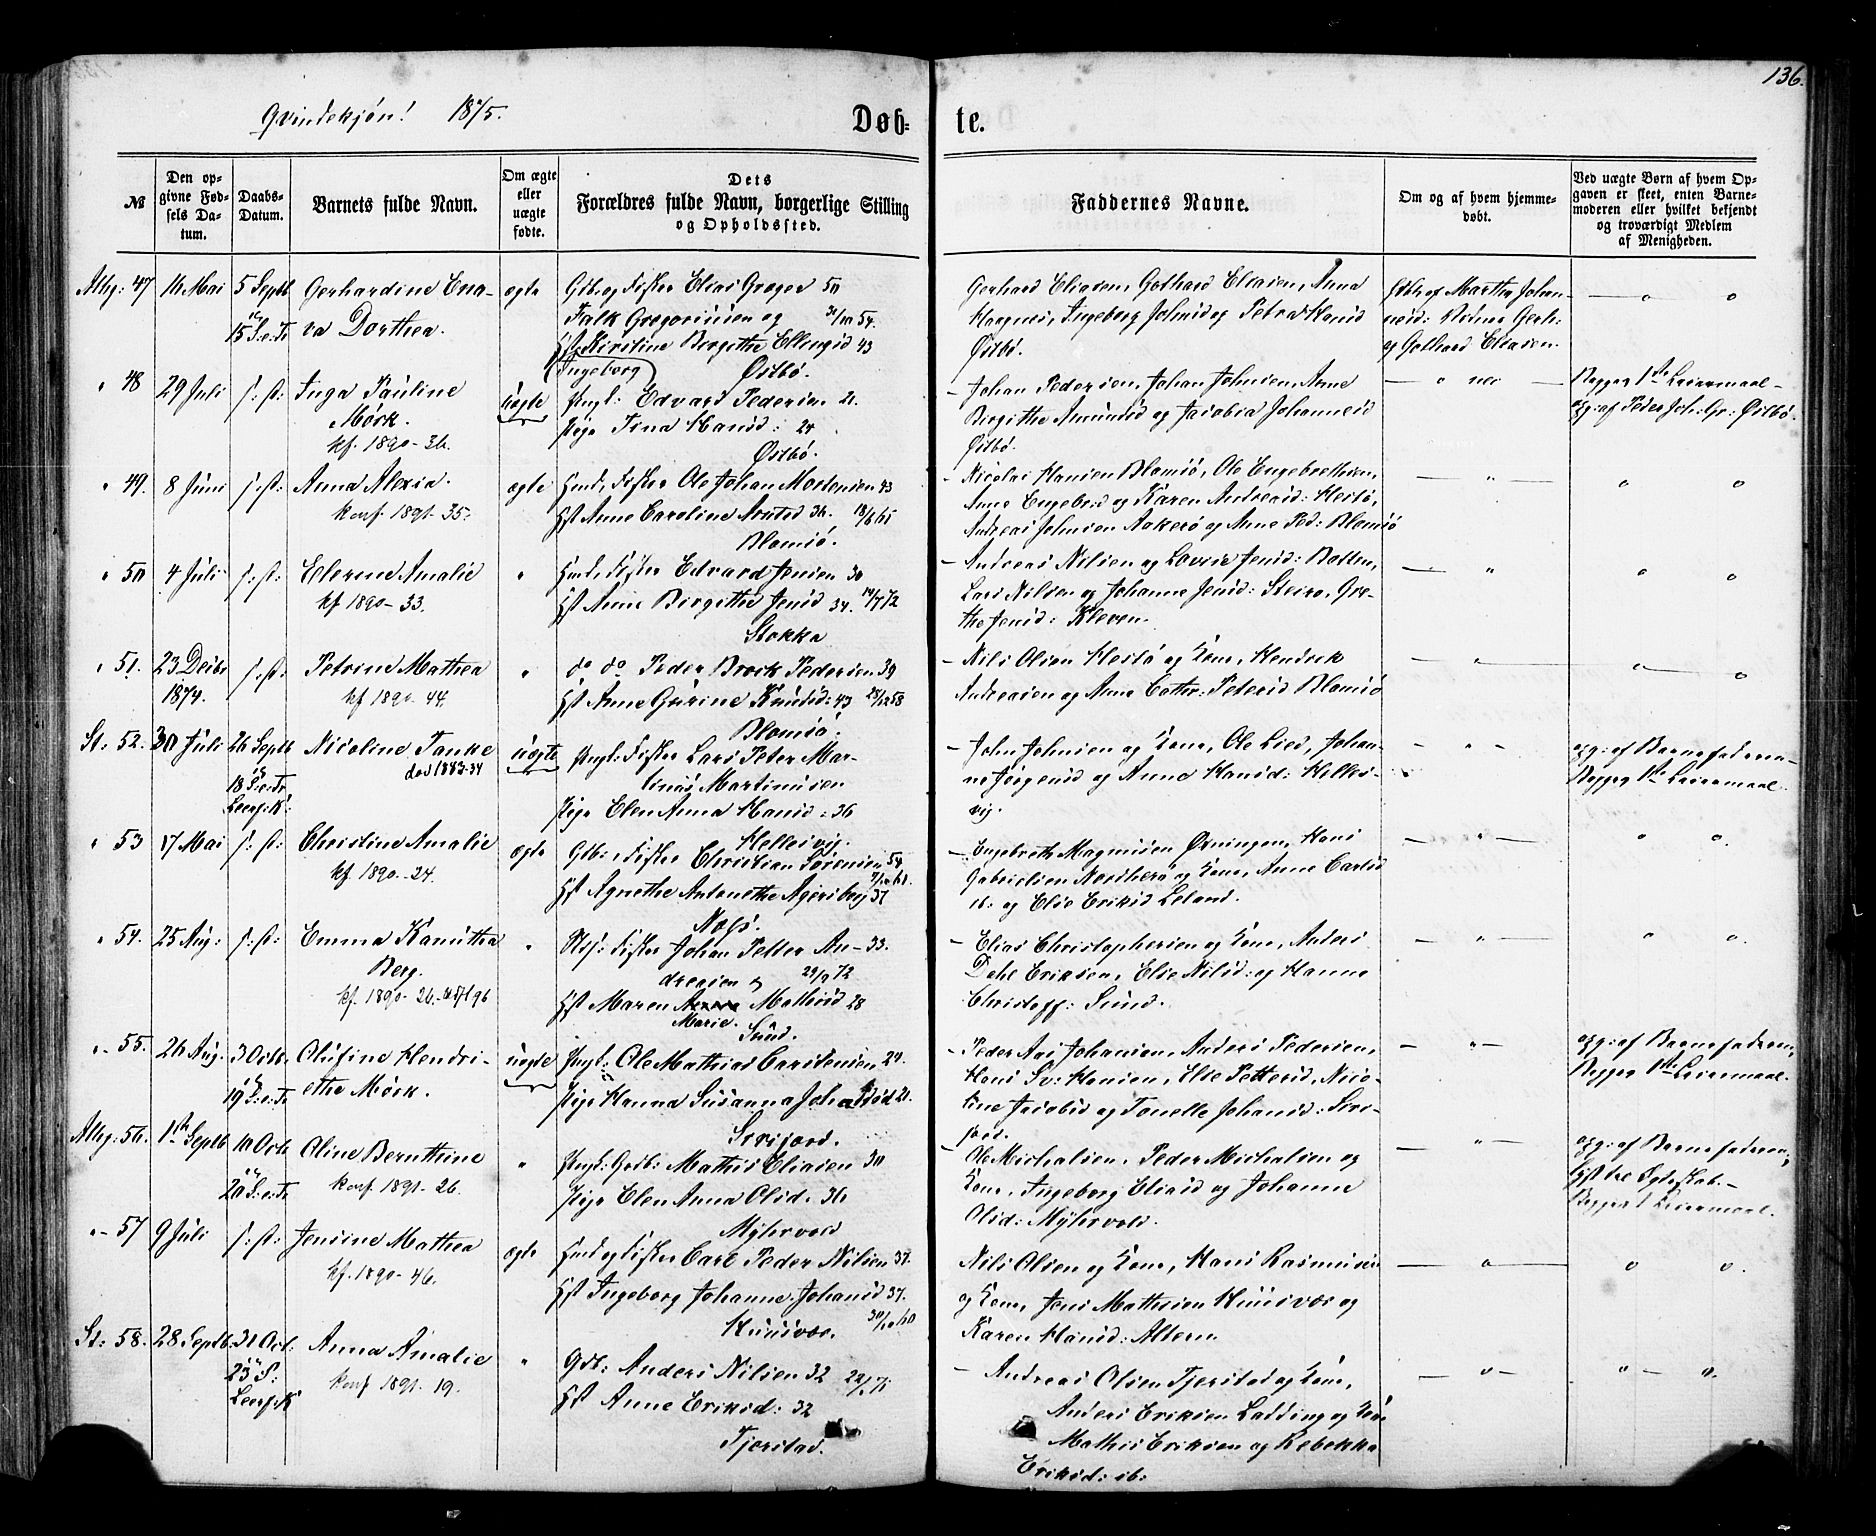 136.
Qvindekjøn! 1875.
Døb-
te.
№
Den op-
givne Fød-
sels Da-
tum.
Daabs-
Datum.
Barnets fulde Navn.
Om ægte
eller
uægte
fødte.
Dets
Forældres fulde Navn, borgerlige Stilling
og Opholdssted.
Faddernes Navne.
Om og af hvem hjemme-
døbt.
Ved uægte Børn af hvem Op-
gaven er skeet, enten Barne-
moderen eller hvilket bekjendt
og troværdigt Medlem
af Menigheden.
47
11 Mai
5 Septb
15 S.e.Tr
Gerhardine
Dorthea.
ægte
Gbr. og Fisker Elias Greger 50
Falk Gregoriusen og
Hst Kirstine Birgithe Ellingsd 43
(Ingeborg)
Østbø.
Gerhard Eliasen, Gothard Eliasen, Anna
Haagnes, Ingeborg Johnsd og Petra Hansd
Østbø.
og Gothard Eliasen.
" 48
29 Juli
s: st:
Inga Pauline
Mørk.
kf. 1890-36.
uægte
Ungk: Edvard Pedersen 21
Pige Tina Hansd: 24
Østbø.
Johan Pedersen, Johan Johnsen, Anne
Birgithe Amundsd og Jacobia Johannesd
Østbø.
nei
Begges 1ste Leiermaal -
opg: af Peder Joh: Gr: Østbø.
" 49.
8 Juni
s: st:
Anna Alexia.
konf. 1891. 35.
ægte
Huusm. Fisker Ole Johan Mortensen 43
Hst Anne Caroline 36. 18/6 65
Blomsø.
Nicolai Hansen Blomsø, Ole Engebrethsen,
Anne Engebr:d og Karen Andreasd: Hestø,
Andreas Johnsen Aakerø og Anne Ped: Blomsø
" 50
4 Juli
s: st:
Elerine Amalie
kf 1890-33.
"
Huusm. Fisker Edvard Jensen 30
Hst Anne Birgithe Jensd 34. 14/7 72
Stokka
Andreas Nilsen og Lovise Jensd: Botten,
Lars Nilsen og Johanne Jensd: Steiro, Gre-
the Jensd: Kleven.
" 51.
23 Decbr
1874.
s: st:
Petrine Mathea
kf 1890. 44.
"
do do Peder Brock Pedersen 39
Hst Anne Gurine Knudsd: 43 28/12 58
Blomsø.
Nils Olsen Hestø og Kone, Hendrik
Andreasen og Anne Cathr: Petersd Blomsø
St: 52.
30 Juli
26 Septb
18 S.e.Tr
Nicoline Tanke
død 1883.34
uægte
Ungk: Fisker Lars Peter Mar-
tinus Martinusen
Pige Elen Anna Hansd: 36
Hellesvig.
John Johnsen og Kone, Ole Lied, Johan-
ne Jørgensd og Anne Hansd: Helles-
vig.
opg: af Barnefaderen
Begges 1ste Leiermaal.
" 53
17 Mai
s: st:
Christine Amalie
kf 1890.-24.
ægte
Gbr: Fisker Christian Sørensen 54
Hst Agnethe Antonethe 37
Engebreth Magnusen Ørningen, Hans
Gabrielsen Nordherø og Kone, Anne Carlsd
ib: og Else Eriksd Leland.
" 54.
25 Aug:
s: st:
Emma Kanutha
Berg.
kf. 1890-26.
"
Fisker Johan Petter An- 33.
dreasen og 29/9 72
Hst Maren Mathisd 28
Marie.
Sund.
Elias Christophersen og Kone, Anders
Dahl Eriksen, Else Nilsd: og Hanna
Christoff: Sund.
" 55.
26 Aug.
3 Octb.
19 S.e.Tr
Olufine Hendri-
ethe Mørk.
uægte
Ungk: Ole Mathias Carstensen 24.
Pige Hanna Susanna Johansd 21.
Peder Aas Johansen, Anders Pedersen,
Hans Sv: Hansen, Else Pettersd, Nico-
line Jacobsd og Tonelle Johansd:
opg: af Barnefaderen,
Begges 1ste Leiermaal.
56.
1ste Septb
10 Octb
20 S.e.Tr
Oline Bernthine
konf. 1891-26.
"
Ungk: Gbr: Mathis Eliasen 30
Pige Elen Anna Olsd. 36
Myhrvold
Ole Michalsen, Peder Michalsen og
Kone, Ingeborg Eliasd og Johanna
Olsd: Myhrvold.
opg: af Barnefaderen,
Begges 1 Leiermaal.
" 57
9 Juli
s: st:
Jensine Mathea
kf. 1890-46.
ægte
Huusm og Fisker Carl Peder Nilsen 37.
Hst Ingeborg Johanne Johansd 37.
Huusvær. 30/10 60
Nils Olsen og Kone, Hans Rasmusen
og Kone, Jens Mathisen Huusvær og
Karen Hansd: Altern
St: 58.
28 Septb.
31 Oct:
23 S:
Anna Amalie
konf 1891. 19.
"
Gbr: Anders Nilsen 32
Hst Anne Eriksd: 32
Tjørstad.
Andreas Olsen Tjørstad og Kone,
Anders Eriksen Ladding og Kone
Mathis Eriksen og Rebekka
Eriksd: ib: